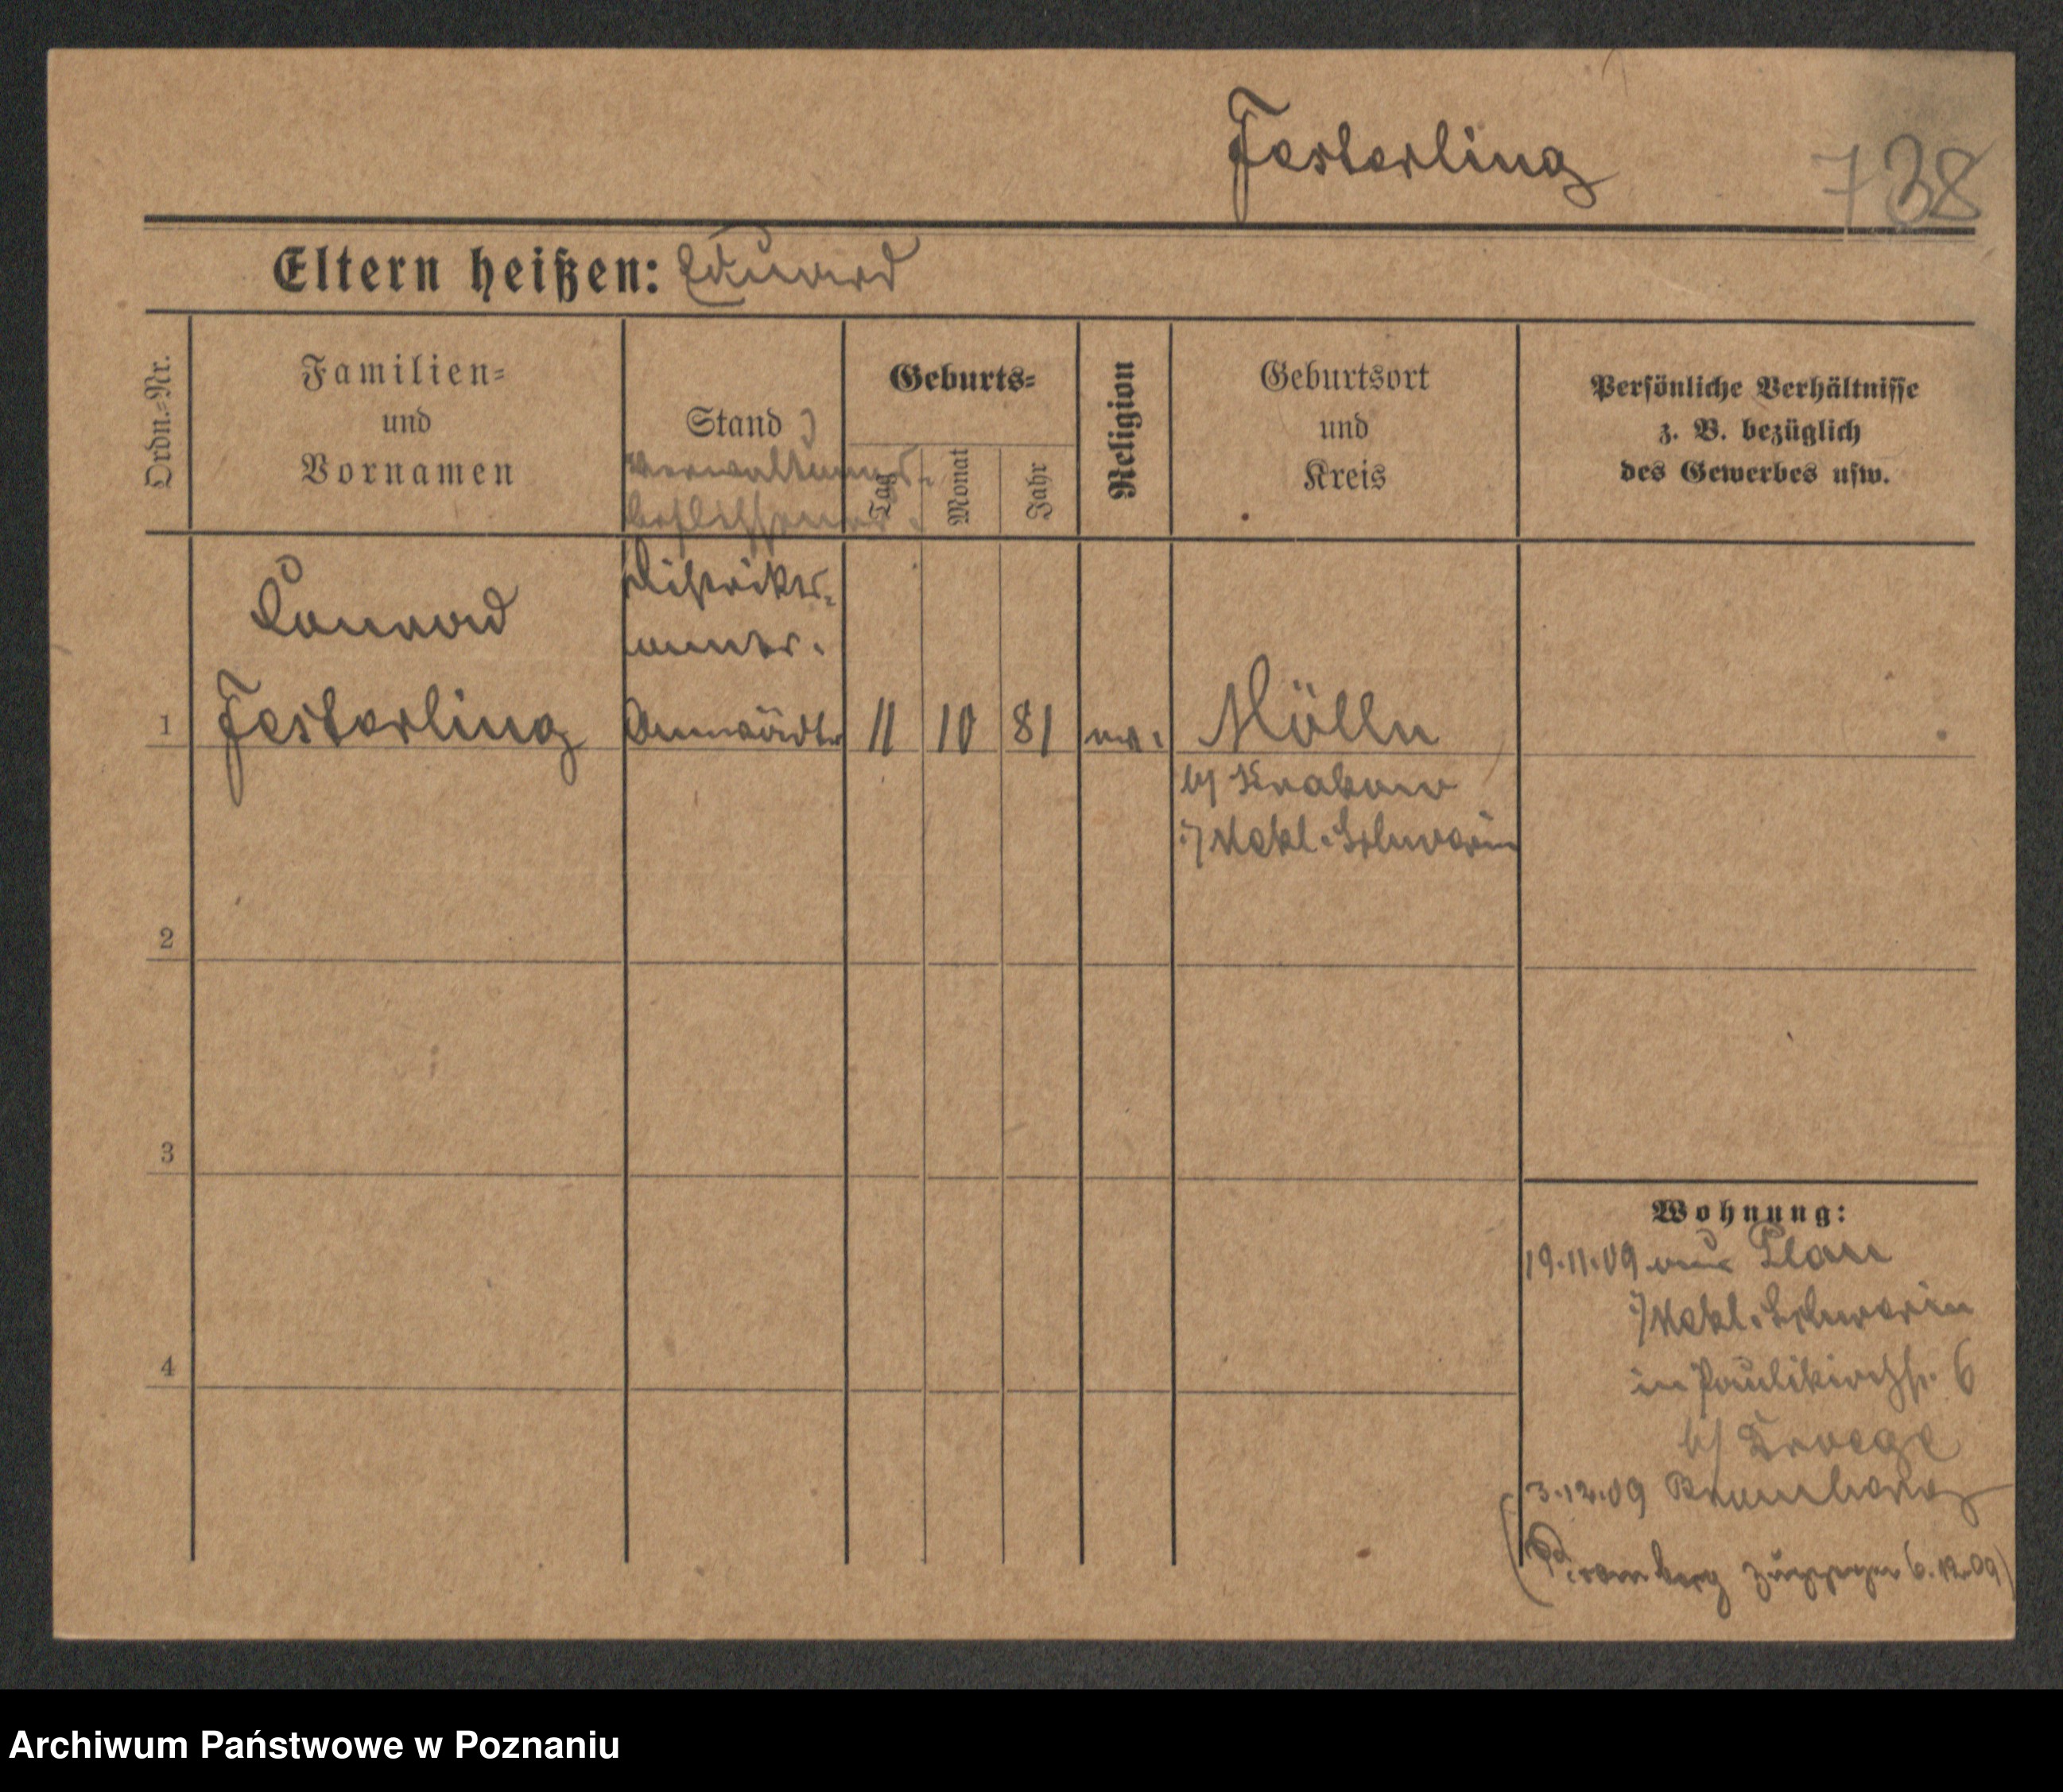 Festerling
738
Eltern heißen: Eduard
Ordn.-Nr.
Familien-
und
Vornamen
Stand
Verwaltungs-
beflissener.
Geburts-
Tag
Monat
Jahr
Religion
Geburtsort
und
Kreis
Persönliche Verhältnisse
z. B. bezüglich
des Gewerbes usw.
Distrikts-
amts.
Anwärter
1
Festerling
11
10
81
Mölln
b/ Krakow
i/ Mekl. Schwerin
2
3
4
Wohnung:
19.11.09 aus Plau
i/ Mekl. Schwerin
in Paulikirchstr. 6
b/ Droege
3.12.09 Bromberg
(Bromberg zugezogen 6.12.09)
Archiwum Państwowe w Poznaniu